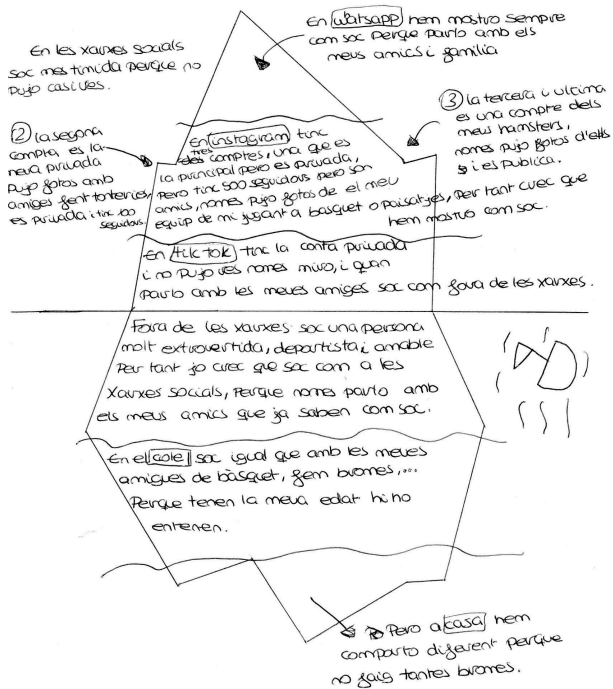 En les xarxes socials
soc mes timida perque no
pujo casi res.
En Watsapp hem mostro sempre
com soc perque parlo amb els
meus amics i familia
② la segona
compta es la
meva privada
pujo fotos amb
amigues fent tonteries,
es privada i tinc 100
seguidors.
③ la tercera i ultima
es una compte dels
meus hamsters,
nomes pujo fotos d'ells
i es publica.
En instagram tinc
tres comptes, una que es
la principal pero es privada,
Pero tinc 500 seguidors pero son
amics, nomes pujo fotos de el meu
equip de mi jugant a basquet o paisatjes, per tant crec que
hem mostro com soc.
En tik tok tinc la conta privada
i no pujo res nomes miro, i quan
parlo amb les meves amigues soc com fora de les xarxes.
Fora de les xarxes soc una persona
molt extrovertida, departista, i amable
Per tant jo crec que soc com a les
xarxes socials, Perque nomes parlo amb
els meus amics que ja saben com soc.
En el cole soc igual que amb les meves
amigues de bàsquet, fem bromes,...
Perque tenen la meva edat hi ho
entenen.
Pero a casa hem
comparto diferent perque
no faig tantes bromes.